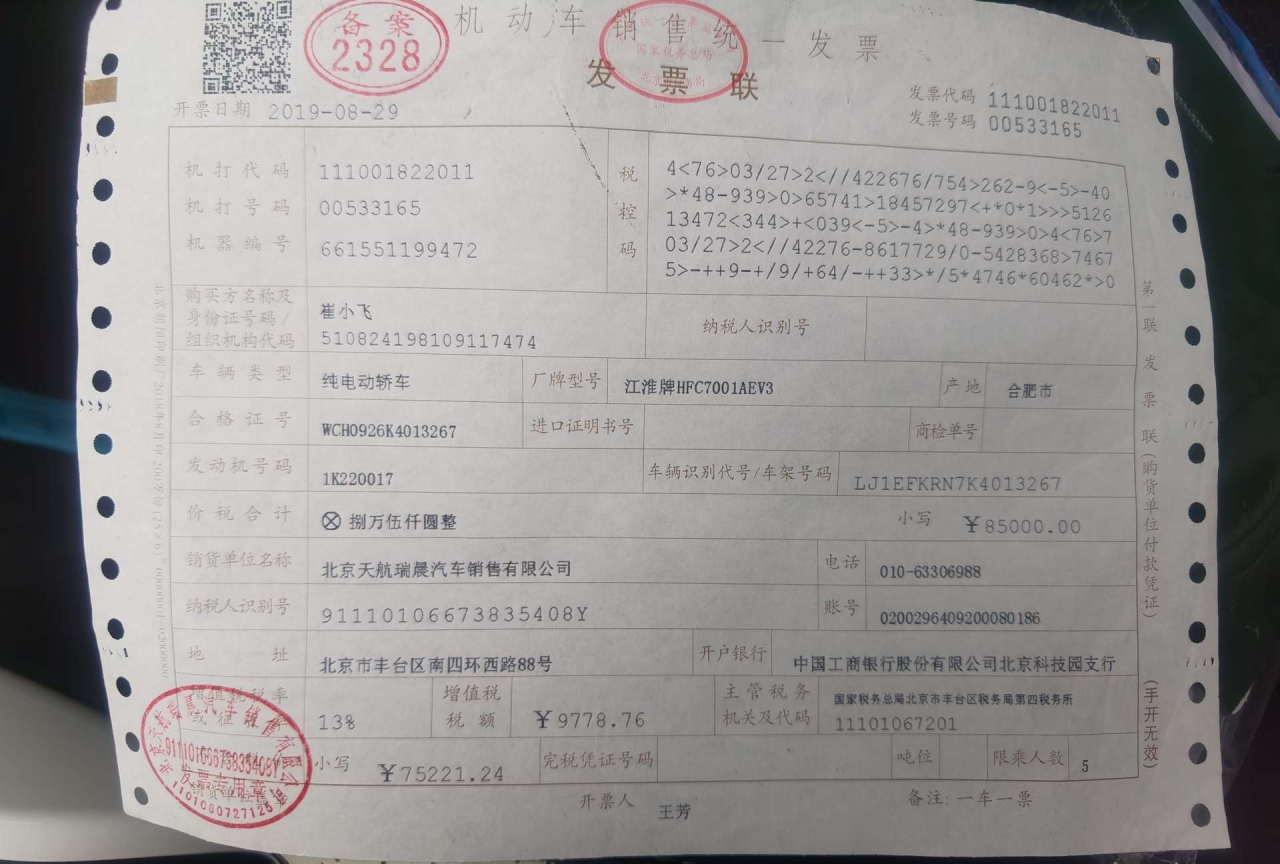 备案
2328
机动车销售统一发票
国家税务总局
发票联
开票日期 2019-08-29
发票代码 111001822011
发票号码 00533165
机打代码 111001822011
机打号码 00533165
机器编号 661551199472
税控码
4<76>03/27>2<//422676/754>262-9<-5>-40
>*48-939>0>65741>18457297<+*0*1>>>5126
13472<344>+<039<-5>-4>*48-939>0>4<76>7
03/27>2<//42276-8617729/0-5428368>7467
5>-++9-+/9/+64/-++33>*/5*4746*60462*>0
购买方名称及
身份证号码/
组织机构代码
崔小飞
510824198109117474
纳税人识别号
车辆类型 纯电动轿车 厂牌型号 江淮牌HFC7001AEV3 产地 合肥市
合格证号 WCH0926K4013267 进口证明书号 商检单号
发动机号码 1K220017 车辆识别代号/车架号码 LJ1EFKRN7K4013267
价税合计 ⊗ 捌万伍仟圆整 小写 ¥85000.00
销货单位名称 北京天航瑞晨汽车销售有限公司 电话 010-63306988
纳税人识别号 91110106673835408Y 账号 0200296409200080186
地址 北京市丰台区南四环西路88号 开户银行 中国工商银行股份有限公司北京科技园支行
增值税税率 13% 增值税
税额 ¥9778.76 主管税务
机关及代码 国家税务总局北京市丰台区税务局第四税务所
11101067201
小写 ¥75221.24 完税凭证号码 吨位 限乘人数 5
开票人 王芳 备注:一车一票
第一联 发票联(购货单位付款凭证)
(手开无效)
北京天航瑞晨汽车销售有限公司
91110106673835408Y
发票专用章
1101060727125